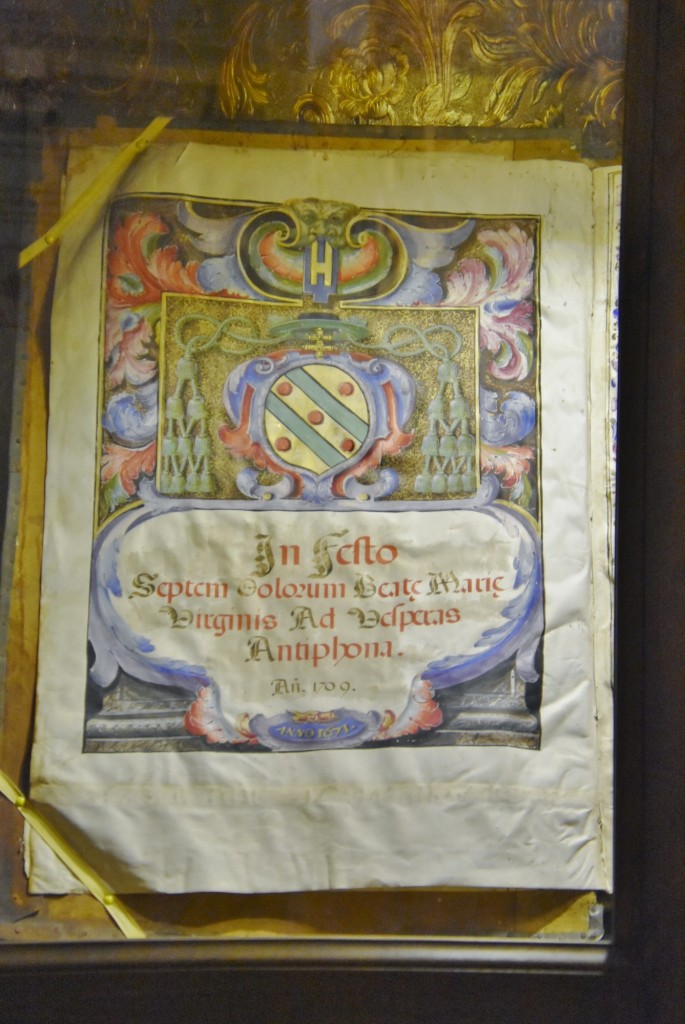 H
In Festo
Septem Dolorum Beatę Marię
Virginis Ad Vesperas
Antiphona.
Añ. 1709.
ANNO 1671.